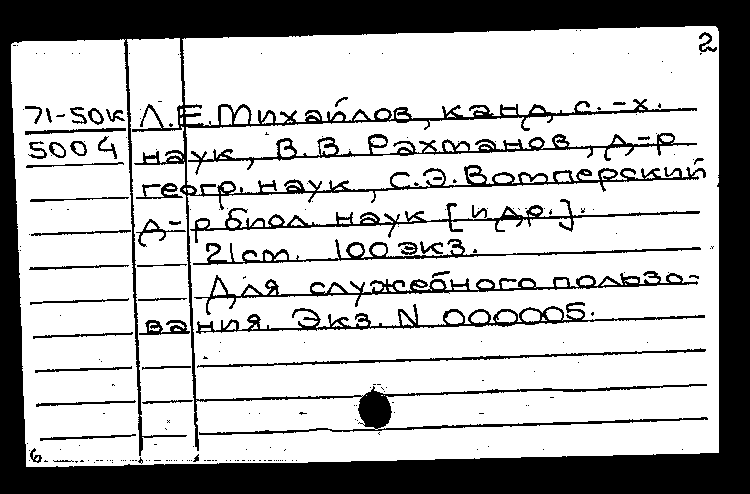 2
71-50к Л.Е.Михайлов, канд. с.-х.
5004 наук, В.В. Рахманов, д-р
геогр. наук, С.Э.Вомперский
д-р биол. наук [и др.].
21 cm. 100 экз.
Для служебного пользо-
вания. Экз. N 000005.
6